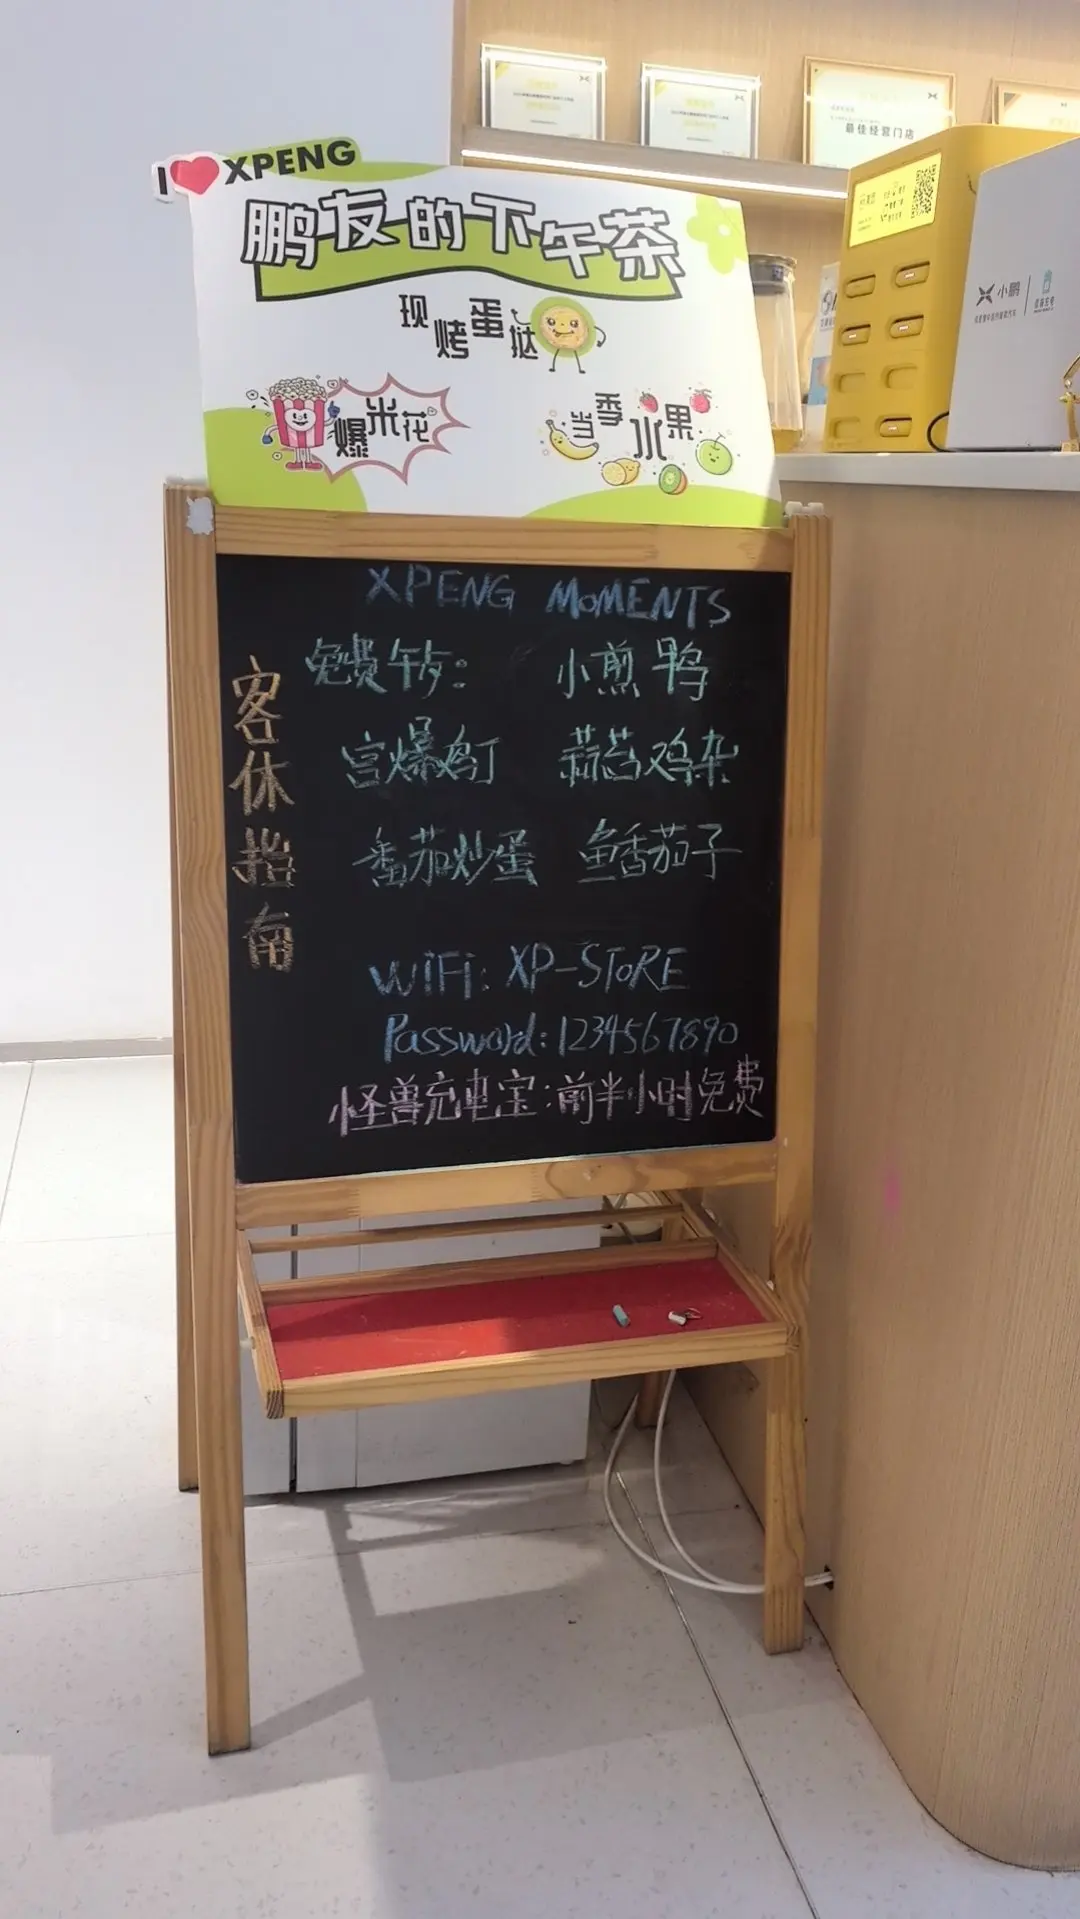 I ❤ XPENG
鹏友的下午茶
现烤蛋挞
爆米花
当季水果
最佳经营门店
小鹏
XPENG MOMENTS
客休指南
免费午歺: 小煎鸭
宫爆鸡丁 蒜苔鸡杂
番茄炒蛋 鱼香茄子
WiFi: XP-SToRE
Password: 1234567890
怪兽充电宝: 前半小时免费